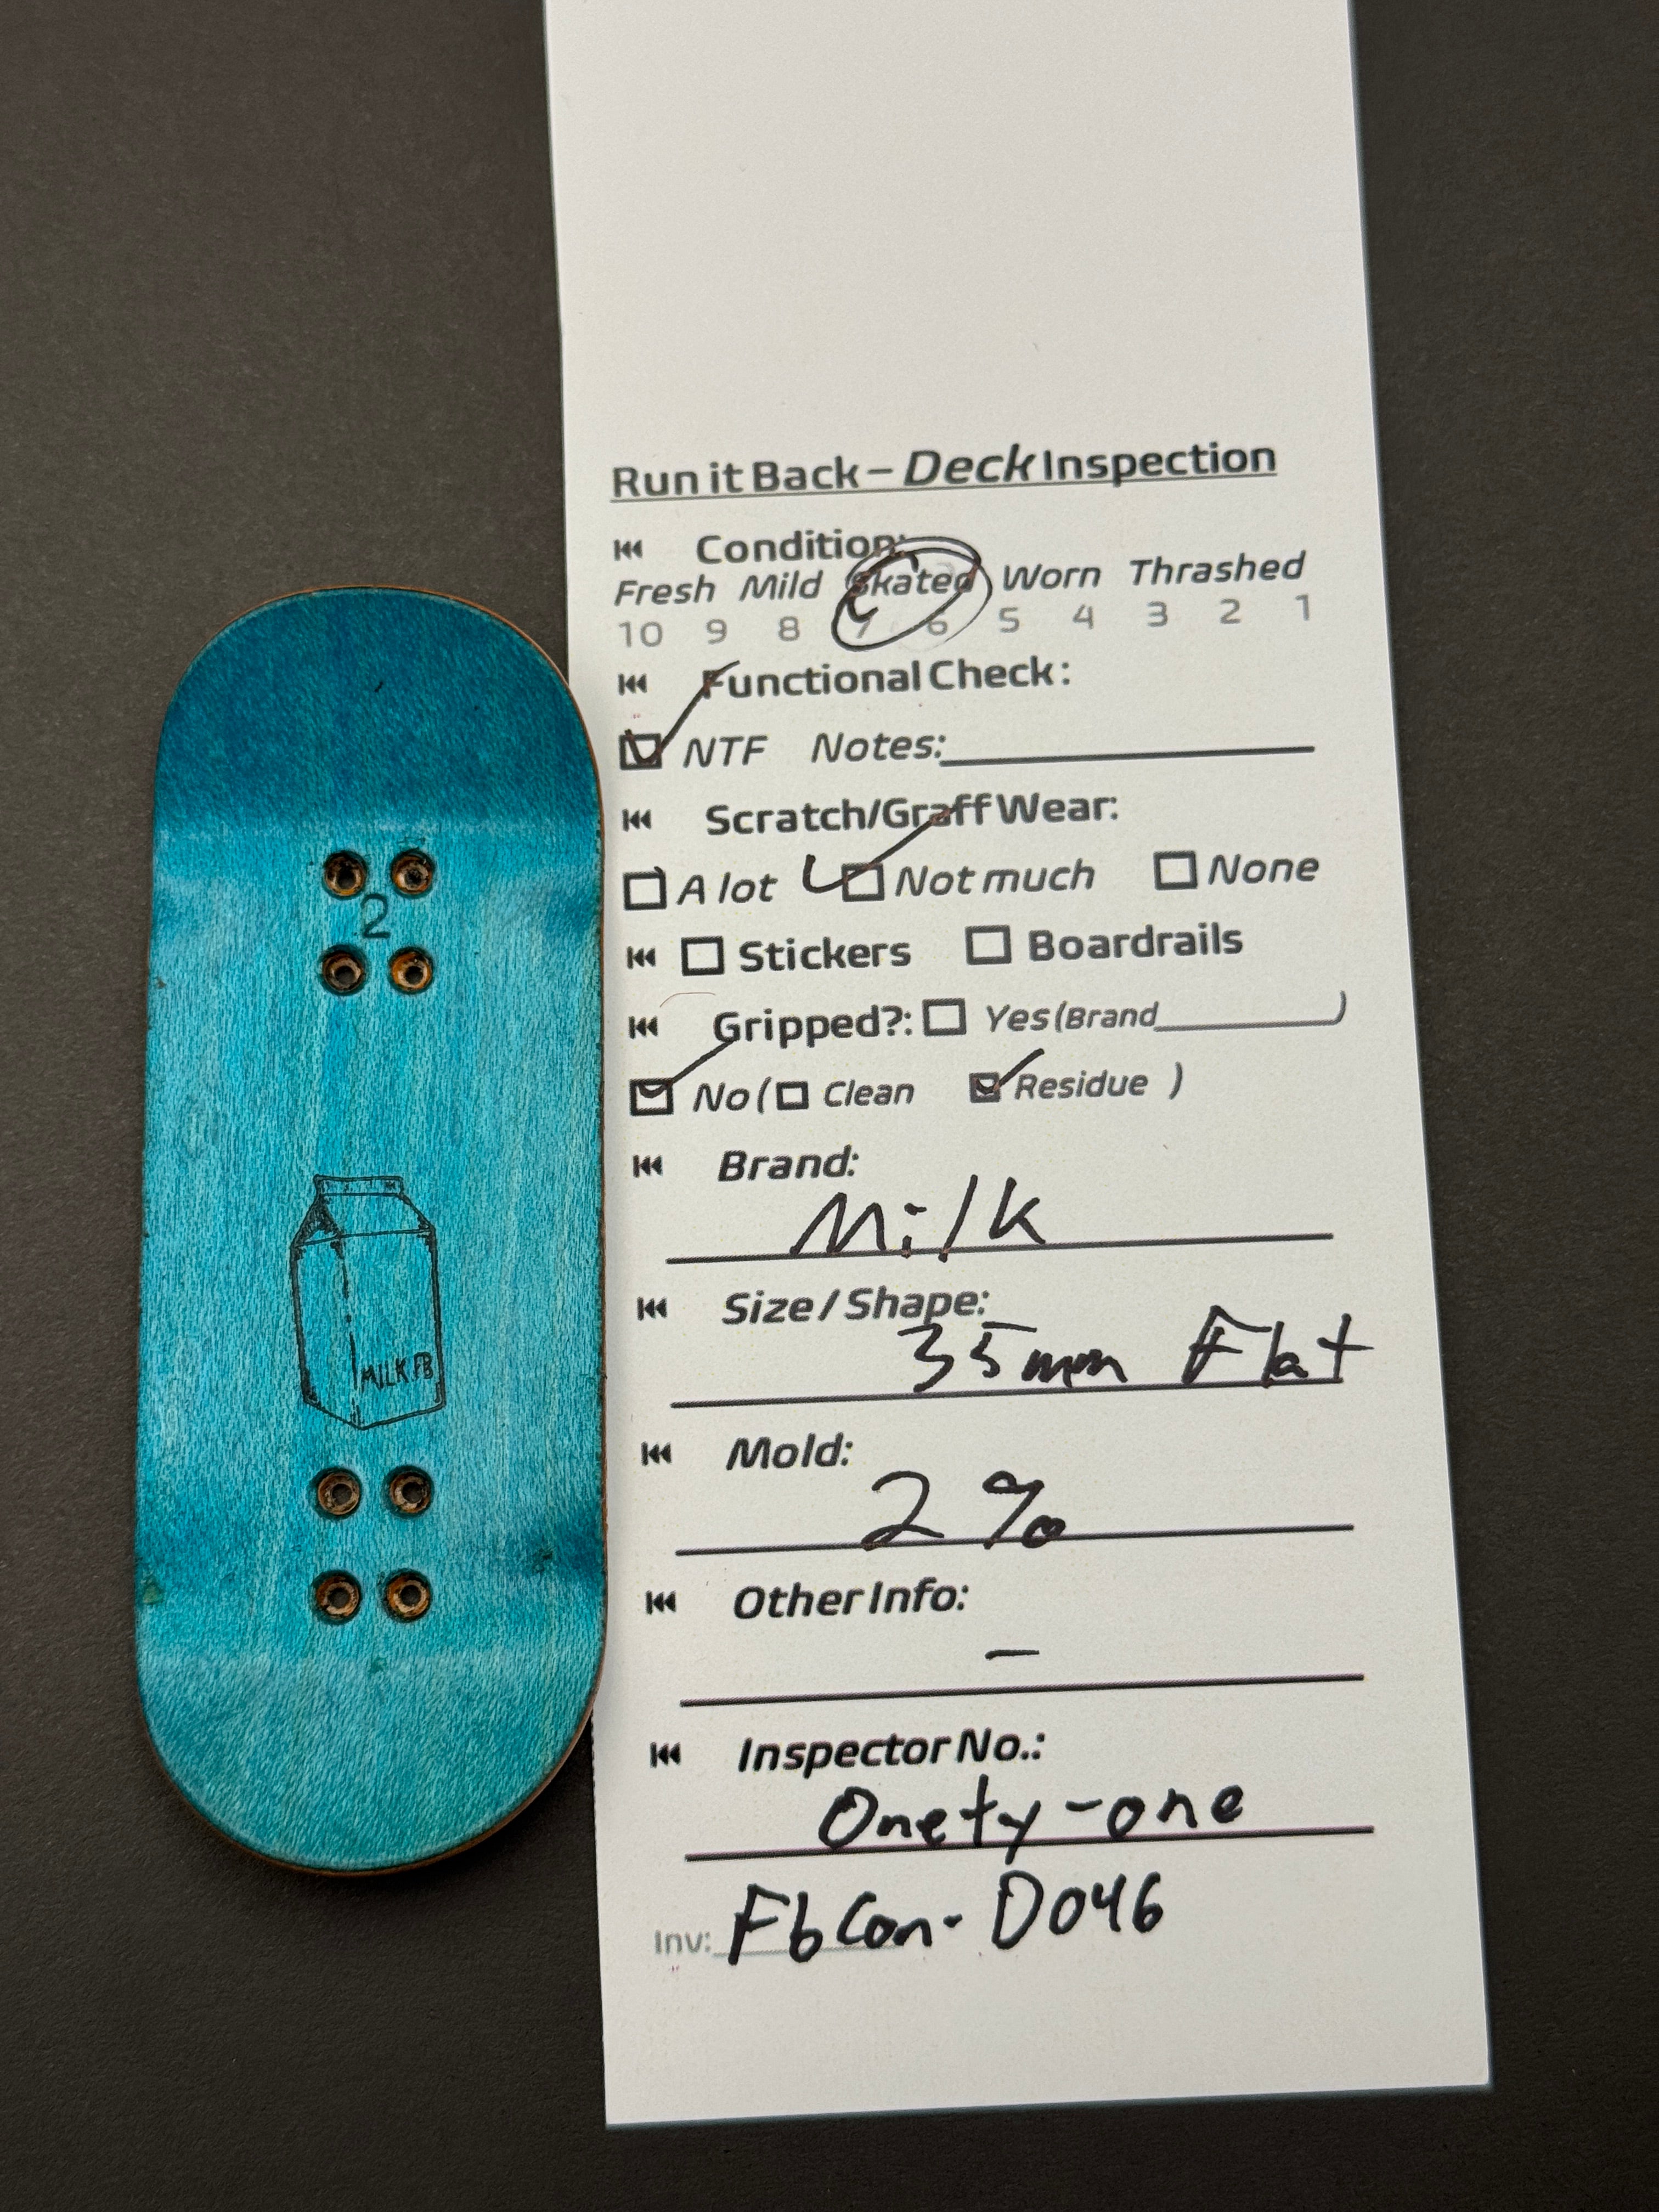 Run it Back – Deck Inspection
Condition:
Fresh Mild Skated Worn Thrashed
10 9 8 7 6 5 4 3 2 1
Functional Check:
NTF Notes:
Scratch/Graff Wear:
A lot Not much None
Stickers Boardrails
Gripped?: Yes (Brand )
No ( Clean Residue )
Brand:
Milk
Size / Shape:
35mm Flat
Mold:
2%
Other Info:
–
Inspector No.:
Onety-one
Inv: FbCon-D046
2
MILK FB